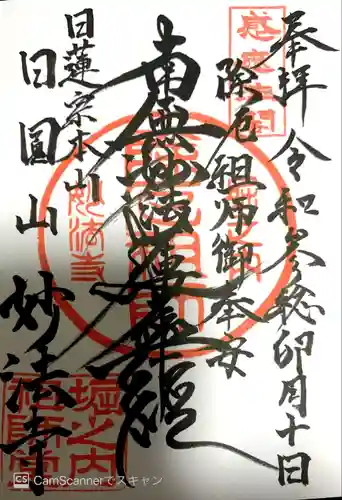 奉拝 令和参稔卯月十日
除厄祖師御奉安
南無妙法蓮華経
日蓮宗本山
日圓山 妙法寺
堀之内
祖師堂
妙法寺
CS CamScannerでスキャン